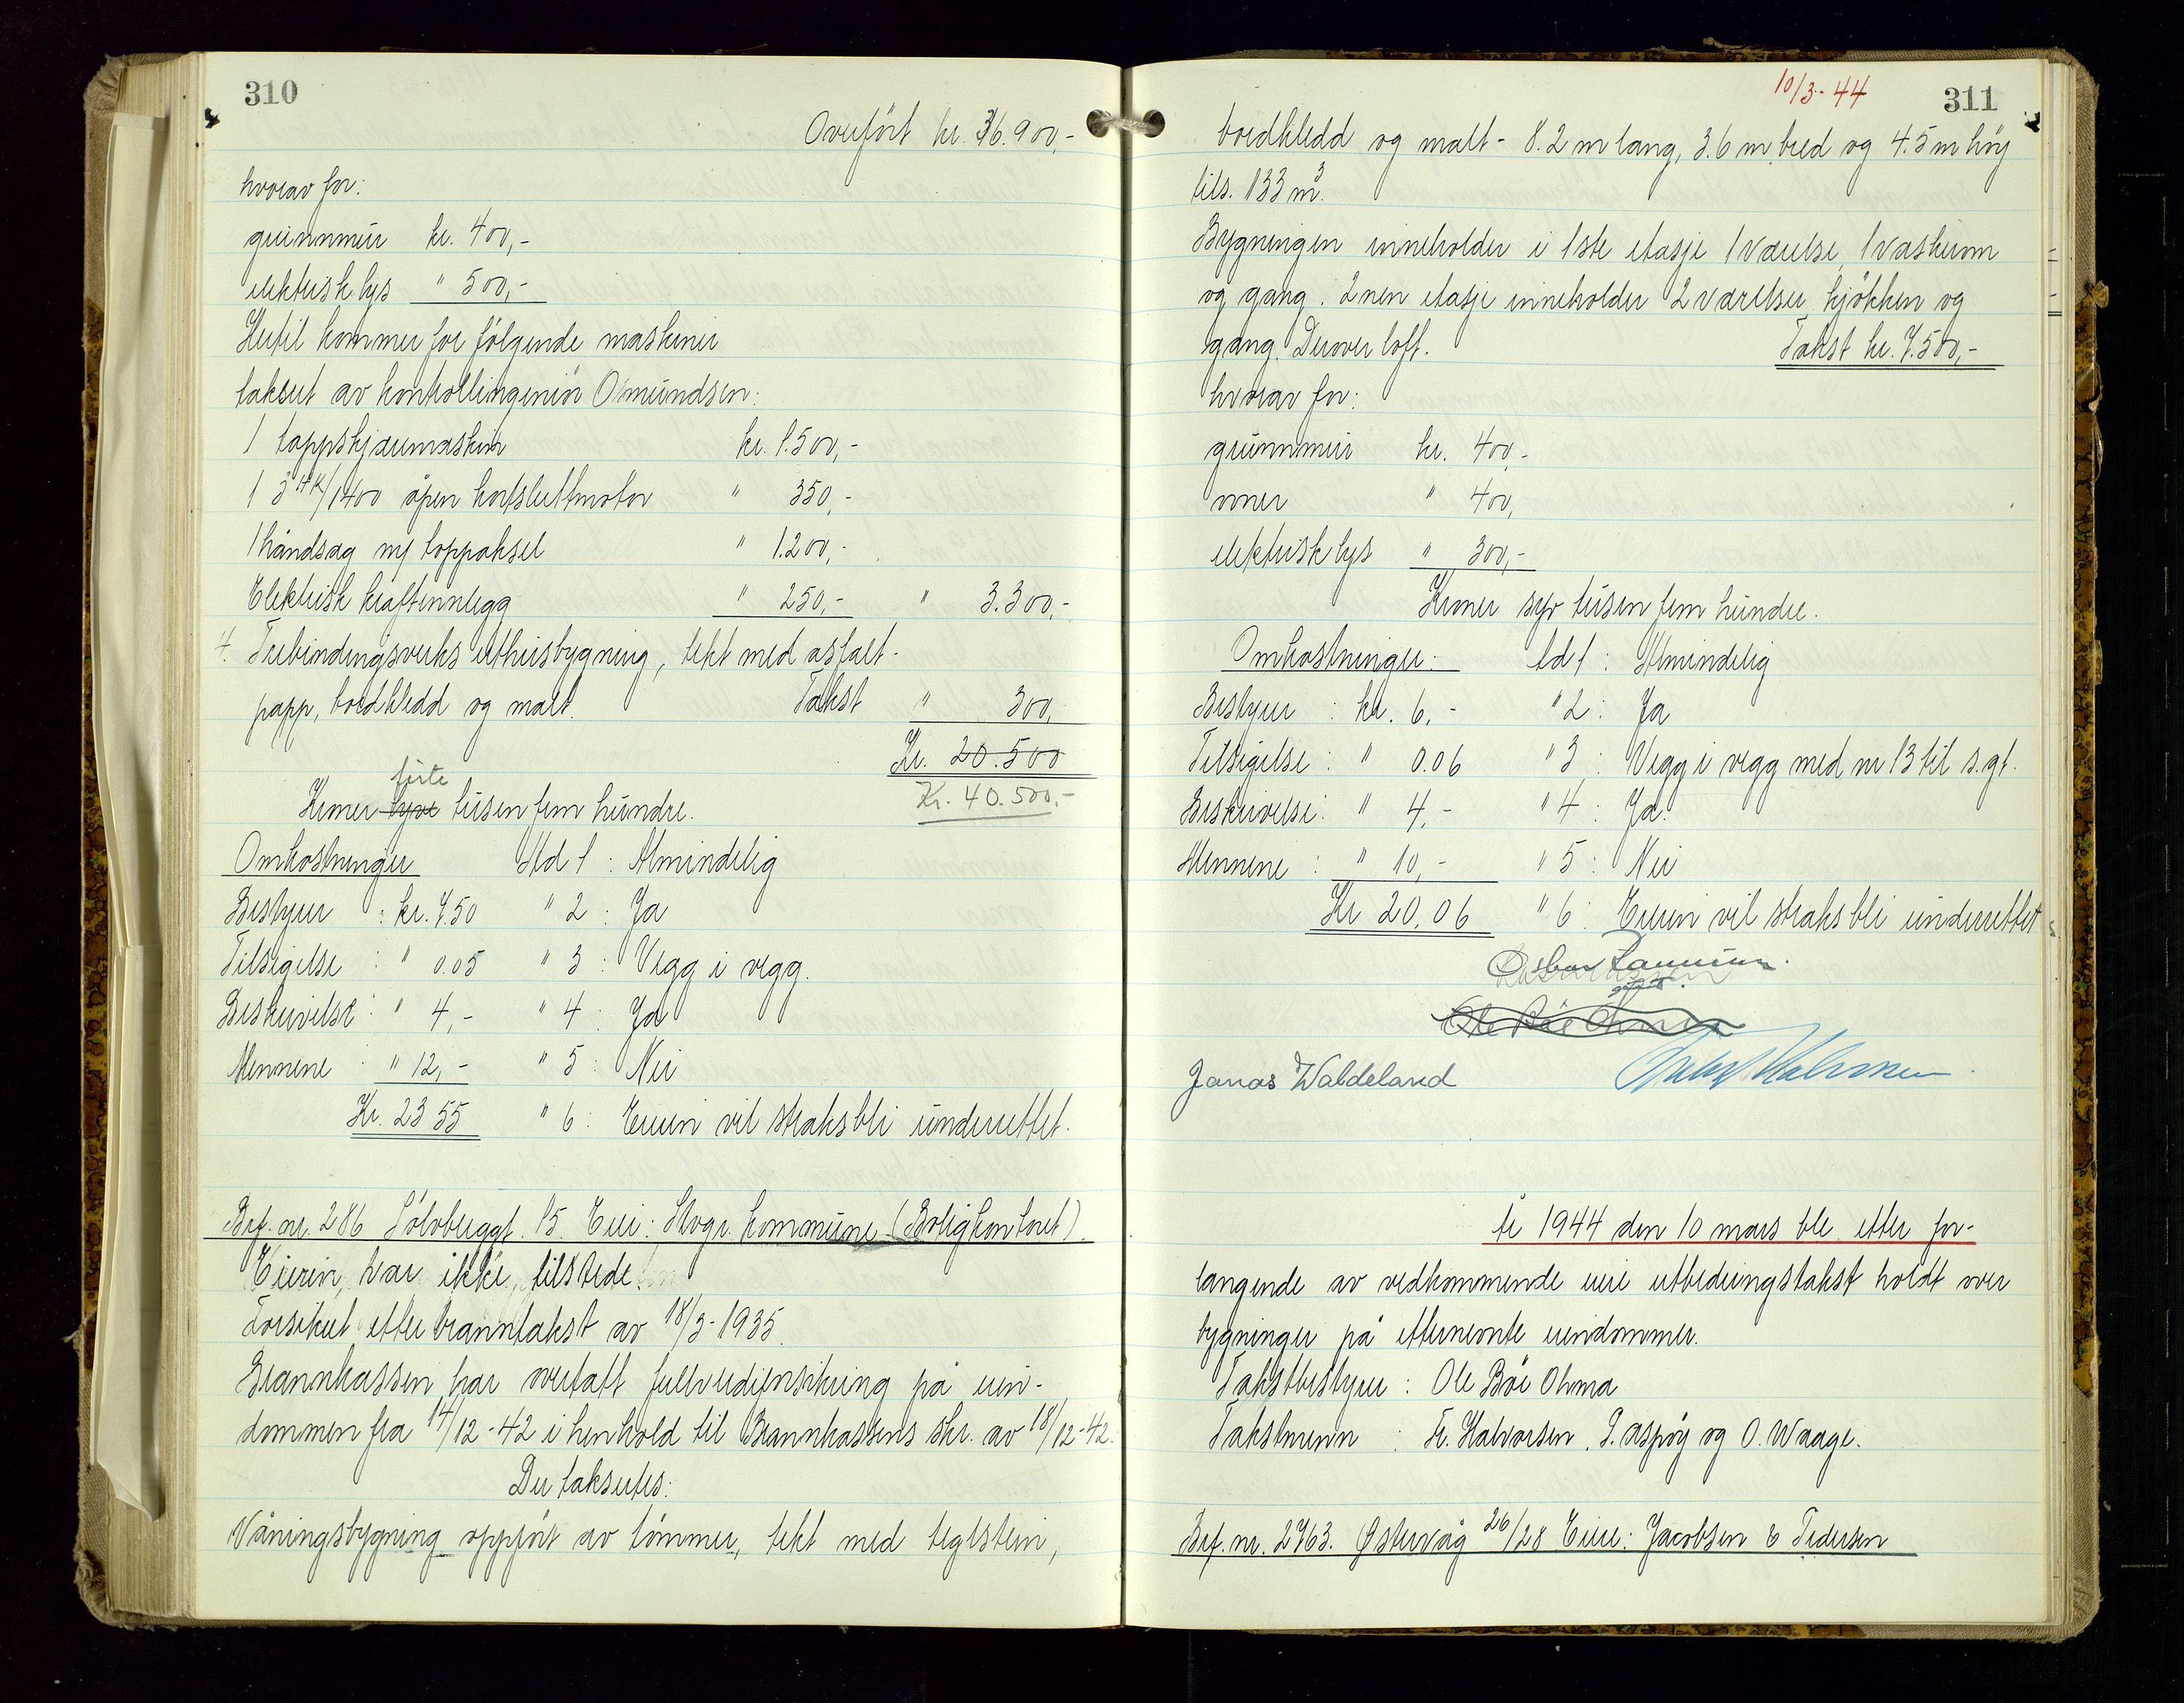 310
Overført kr. 36.900,-
hvorav for:
grunnmur kr. 400,-
elektrisk lys " 500,-
Hertil kommer for følgende maskiner
taksert av kontrollingeniør Omundsen:
1 toppskjæremaskin kr. 1.500,-
1 3 HK/1400 åpen kortsluttmotor " 350,-
1 båndsag m/ toppaksel " 1.200,-
Elektrisk kraftinnlegg " 250,- " 3.300,-
4. Trebindingsverks uthusbygning, tekt med asfalt-
papp, bordkledd og malt. Takst " 300,-
Kr. 20.500
førte
Kroner tyve tusen fem hundre. Kr. 40.500,-
Omkostninger Std 1 : Almindelig
Bestyrer : kr. 7.50 " 2 : Ja
Tilsigelse : " 0.05 " 3 : Vegg i vegg.
Beskrivelse : " 4,- " 4 : Ja
Mennene : " 12,- " 5 : Nei
Kr. 23 55 " 6 : Eieren vil straks bli underrettet.
Brf. nr. 286 Sölvberggt. 15. Eier: Stvgr. kommune (Boligkontoret).
Eieren var ikke tilstede.
Forsikret etter branntakst av 18/3-1935.
Brannkassen har overtatt fullverdiforsikring på eien-
dommen fra 14/12-42 i henhold til Brannkassens skr. av 18/12-42.
Der takseres:
Våningsbygning oppført av tømmer, tekt med teglstein,
10/3-44
311
bordkledd og malt - 8.2 m lang, 3.6 m bred og 4.5 m høy
tils. 133 m³.
Bygningen inneholder i 1ste etasje 1 værelse, 1 vaskerom
og gang. 2nen etasje inneholder 2 værelser, kjøkken og
gang. Derover loft. Takst kr. 7.500,-
hvorav for:
grunnmur kr. 400,-
ovner " 400,
elektrisk lys " 300,-
Kroner syv tusen fem hundre.
Omkostninger: td 1 : Almindelig
Bestyrer : kr. 6,- " 2 : Ja
Tilsigelse : " 0.06 " 3 : Vegg i vegg med nr 13 til s.gt.
Beskrivelse : " 4,- " 4 : Ja.
Mennene : " 10,- " 5 : Nei
Kr 20.06 " 6 : Eieren vil straks bli underrettet
Ole Böe Ohma
Jonas Waldeland
År 1944 den 10 mars ble etter for-
langende av vedkommende eier utbedringstakst holdt over
bygninger på etternevnte eiendommer.
Takstbestyrer : Ole Böe Ohma
Takstmenn : Fr. Halvorsen, P. Aspøy og O. Waage.
Brf. nr. 2763. Østervåg 26/28 Eiere: Jacobsen & Pedersen